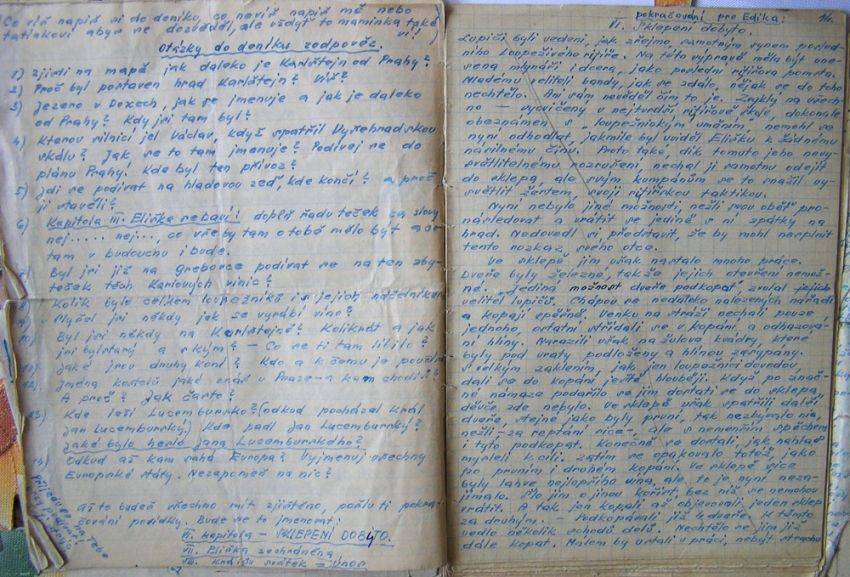 Co víš napiš si do deníku, co nevíš napiš mě nebo
tatínkovi abys se dozvěděl, ale vždyť to maminka také
ví!
Otázky do deníku zodpověz.
1) Zjisti na mapě, jak daleko je Karlštejn od Prahy?
2) Proč byl postaven hrad Karlštejn? Víš?
3) Jezero v Doxech, jak se jmenuje a jak je daleko
od Prahy? Kdy jsi tam byl?
4) Kterou silnicí jel Václav, když spatřil Vyšehradskou
skálu? Jak se to tam jmenuje? Podívej se do
plánu Prahy. Kde byl ten přívoz?
5) Jdi se podívat na hladovou zeď, kde končí? a proč
ji stavěli?
6) Kapitola III. Eliška se baví: doplň řadu teček za slovy
nej..... nej..., co vše by tam o tobě mělo být a
tam v budoucnu i bude.
Byl jsi již na Grebovce podívat se na ten zby-
teček těch Karlových vinic?
Kolik bylo celkem loupežníků i s jejich náčelníkem
Myslel jsi někdy jak se vyrábí víno?
10) Byl jsi někdy na Karlštejně? Kolikrát a jak
jsi byl starý a s kým? - Co se ti tam líbilo?
11) Jaké jsou druhy koní? Kdo a k čemu je
12) Jména kostelů jaké znáš v Praze - a kam chodíš?
A proč? Jak často?
13) Kde leží Lucembursko? (odkud pocházel král
Jan Lucemburský) Kde padl Jan Lucemburský?
Jaké bylo heslo Jana Lucemburského?
14) Odkud až kam sahá Evropa? Vyjmenuj všechny
Evropské státy. Nezapomeň na nic?
Až to budeš všechno mít zjištěno, pošlu ti pokra-
čování povídky. Bude se to jmenovat:
VI. kapitola - SKLEPENÍ DOBYTO.
VII. Eliška zachráněna
VIII. Králův svátek = únor
pokračování pro Edíka:
VI. Sklepení dobyto.
Lupiči byli vedeni, jak zřejmo, samotným synem posled-
ního loupeživého rytíře. Na této výpravě měla být une-
sena mlynáři i dcera, jako poslední rytířova pomsta.
Mladému veliteli bandy, jak se zdálo, nějak se do toho
nechtělo. Ani sám nevěděl čím to je. Zvyklý na všech-
no - vycvičený v nejtvrdší rytířské škole, dokonale
obeznámen s "loupežnickým" uměním, nemohl se
nyní odhodlat, jakmile byl uviděl Elišku k žádnému
násilnému činu. Proto také, dík tomuto jeho nevy-
světlitelnému rozrušení, nechal ji samotnu odejít
do sklepa, ale svým kumpánům se to snažil vy-
světlit žertem, svojí rytířskou taktikou.
Nyní nebylo jiné možnosti, nežli svou oběť pro-
následovat a vrátit se jedině s ní zpátky na
hrad. Nedovedl si představit, že by mohl nesplnit
tento rozkaz svého otce.
Ve sklepě jim však nastalo mnoho práce.
Dveře byly železné, takže jejich otevření nemož-
né. Jediná možnost dveře podkopat zvolal jejich
velitel lupičů. Chápou se nedaleko nalezených nářadí
a kopají spěšně. Venku na stráži nechali pouze
jednoho, ostatní střídali se v kopání a odhazová-
ní hlíny. Narazili však na žulové kvádry, které
byly pod vraty podloženy a hlínou zasypány.
S velkým zaklením, jak jen loupežníci dovedou,
dali se do kopání ještě hlouběji. Když po znač-
né námaze podařilo se jim dostati se do sklepa
děvče zde nebylo. Ve sklepě však spatřili další
dveře, stejné jako byly první, tak nezbývalo nic,
nežli - za reptání sice - ale s nemenším spěchem
i tyto podkopat. Konečně se dostali, jak nahlas
mysleli k cíli. Zatím se opakovalo totéž, jako
po prvním i druhém kopání. Ve sklepě sice
byly lahve nejlepšího vína, ale to je nyní neza-
jímalo. Šlo jim o jinou kořist, bez níž se nemohou
vrátit. A tak jen kopali až objevovali jeden sklep
za druhým. - Podkopávali již dveře, k těmto
vedlo několik schodů dolů. Nechtělo se jim již
dále kopat. Málem by ustali v práci, nebýt strachu